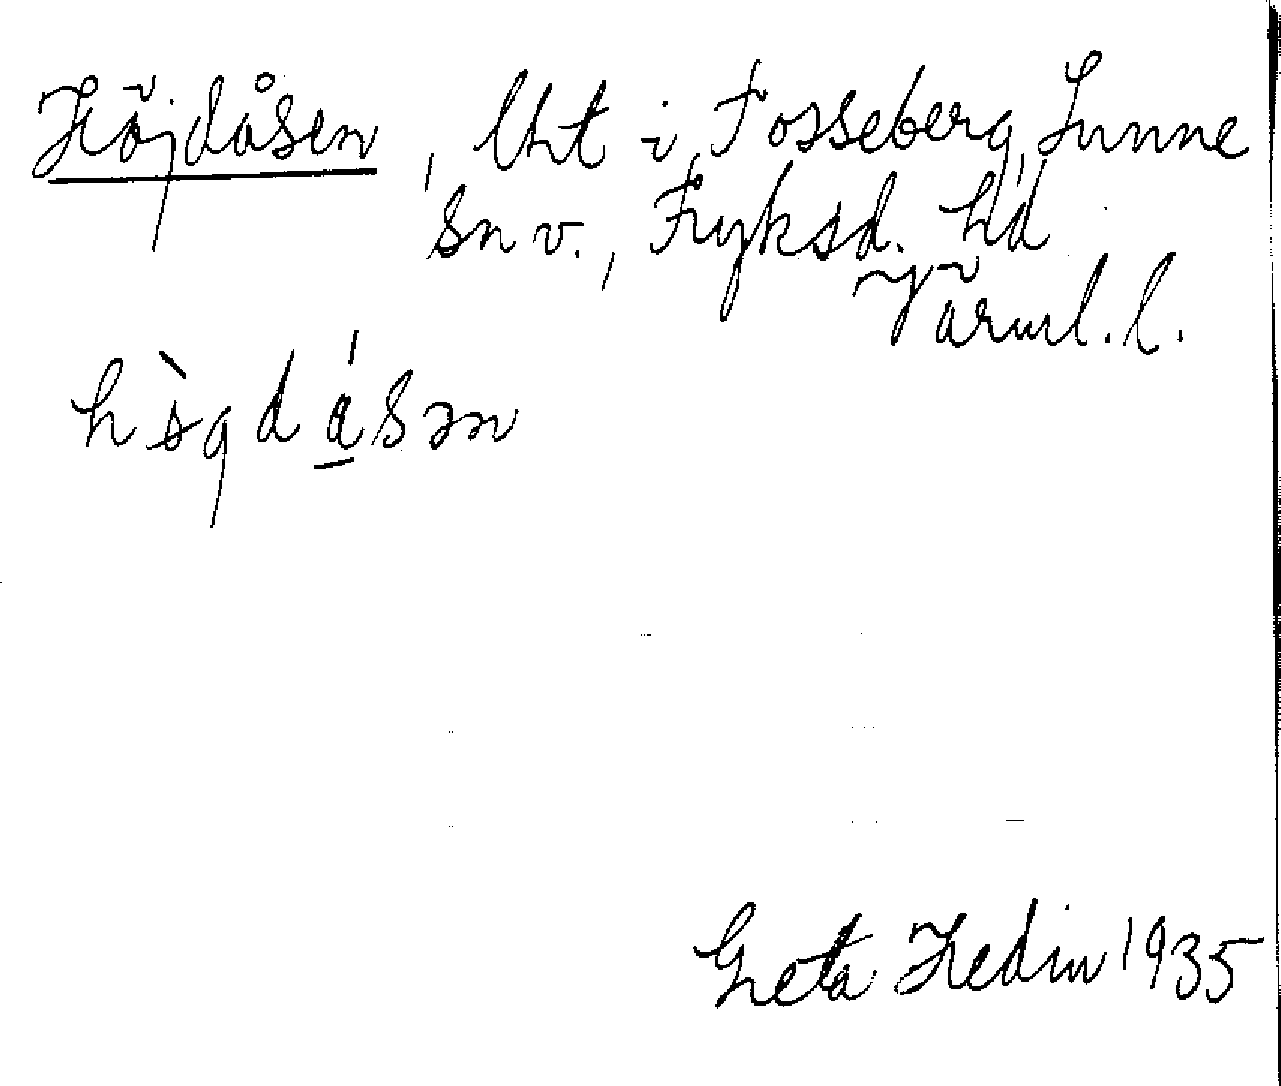 Höjdåsen, lht i Fosseberg, Sunne
sn v., Fryksd. hd
Värml. l.
Greta Hedin 1935